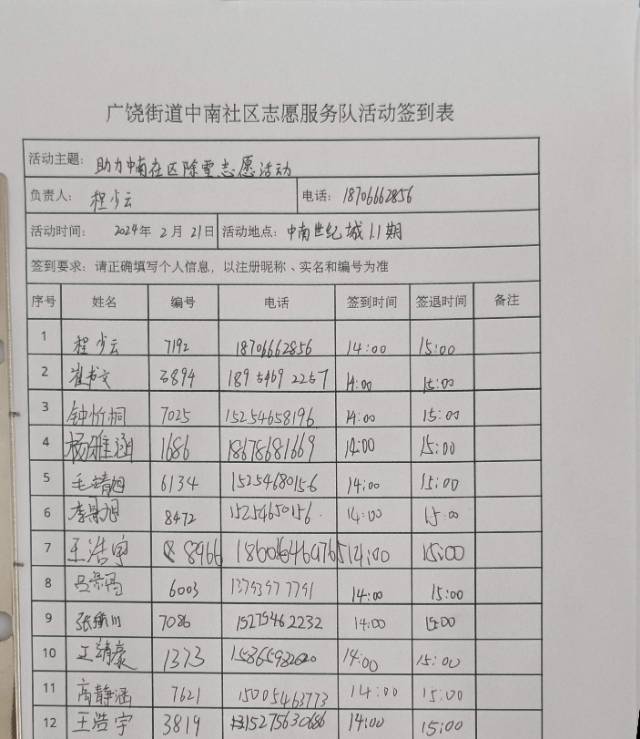 广饶街道中南社区志愿服务队活动签到表
活动主题： 助力中南社区除雪志愿活动
负责人： 程少云 电话： 18706662856
活动时间： 2024年 2月 21日 活动地点： 中南世纪城1.1期
签到要求：请正确填写个人信息，以注册昵称、实名和编号为准
序号 姓名 编号 电话 签到时间 签退时间 备注
1 程少云 7192 18706662856 14:00 15:00
2 崔书文 3894 18954692257 14:00 15:00
3 钟忻桐 7025 15254658196 14:00 15:00
4 杨雅涵 1686 18678681669 14:00 15:00
5 毛靖旭 6134 15254680156 14:00 15:00
6 李景旭 8472 15254650156 14:00 15:00
7 王浩宇 8966 14:00 15:00
8 6003 14:00 15:00
9 7086 15275462232 14:00 15:00
10 1373 14:00 15:00
11 高静涵 7621 15005463773 14:00 15:00
12 王浩宇 3819 15275630686 14:00 15:00